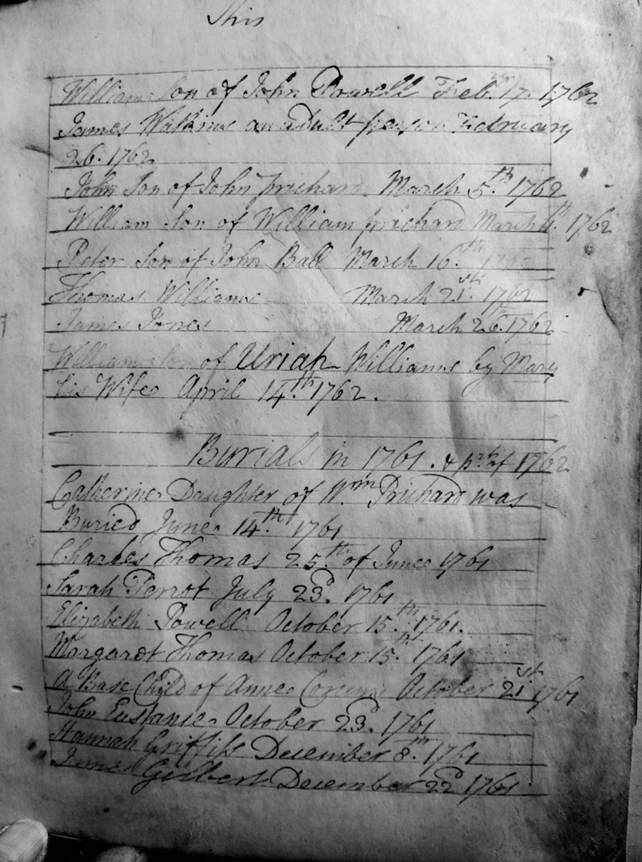 This
William Son of John Powell Feb. 17. 1762
James Watkins an adult person February
26. 1762
John Son of John prichard March 5.th 1762
William Son of William prichard March th 1762
Peter Son of John Ball March 16.th
Thomas Williams March 21.st 1762
James Jones March 26. 1762
William Son of Uriah Williams by Mary
his Wife April 14.th 1762.
Burials in 1761. & pt. of 1762
Catherine Daughter of Wm Prichard was
Buried June 14.th 1761
Charles Thomas 25.th of June 1761
Sarah Perrot July 23d. 1761
Elizabeth Powell October 15.th 1761.
Margaret Thomas October 15.th 1761
A Base Child of Anne October 21st 1761
John Eustance October 23d. 1761
Hannah Griffiths December 8.th 1761
Gilbert December 22d 1761.